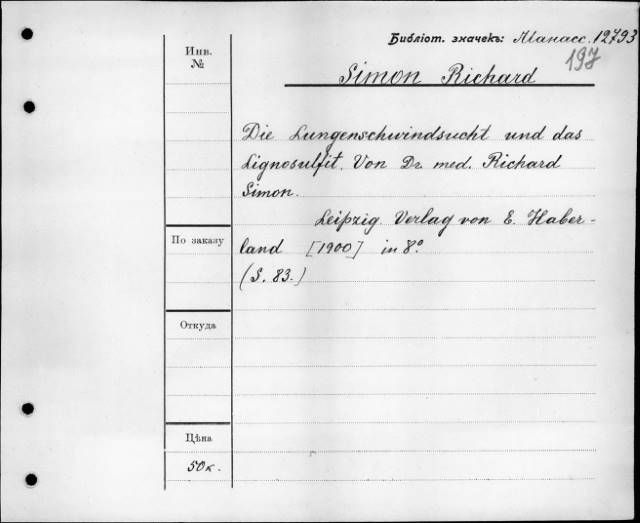 Библіот. значекъ: Манасс. 12793
197
Инв.
№
Simon Richard
Die Lungenschwindsucht und das
Lignosulfit. Von Dr. med. Richard
Simon.
Leipzig. Verlag von E. Haber-
land [1900] in 8º
(S. 83.)
По заказу
Откуда
Цѣна
50 к.